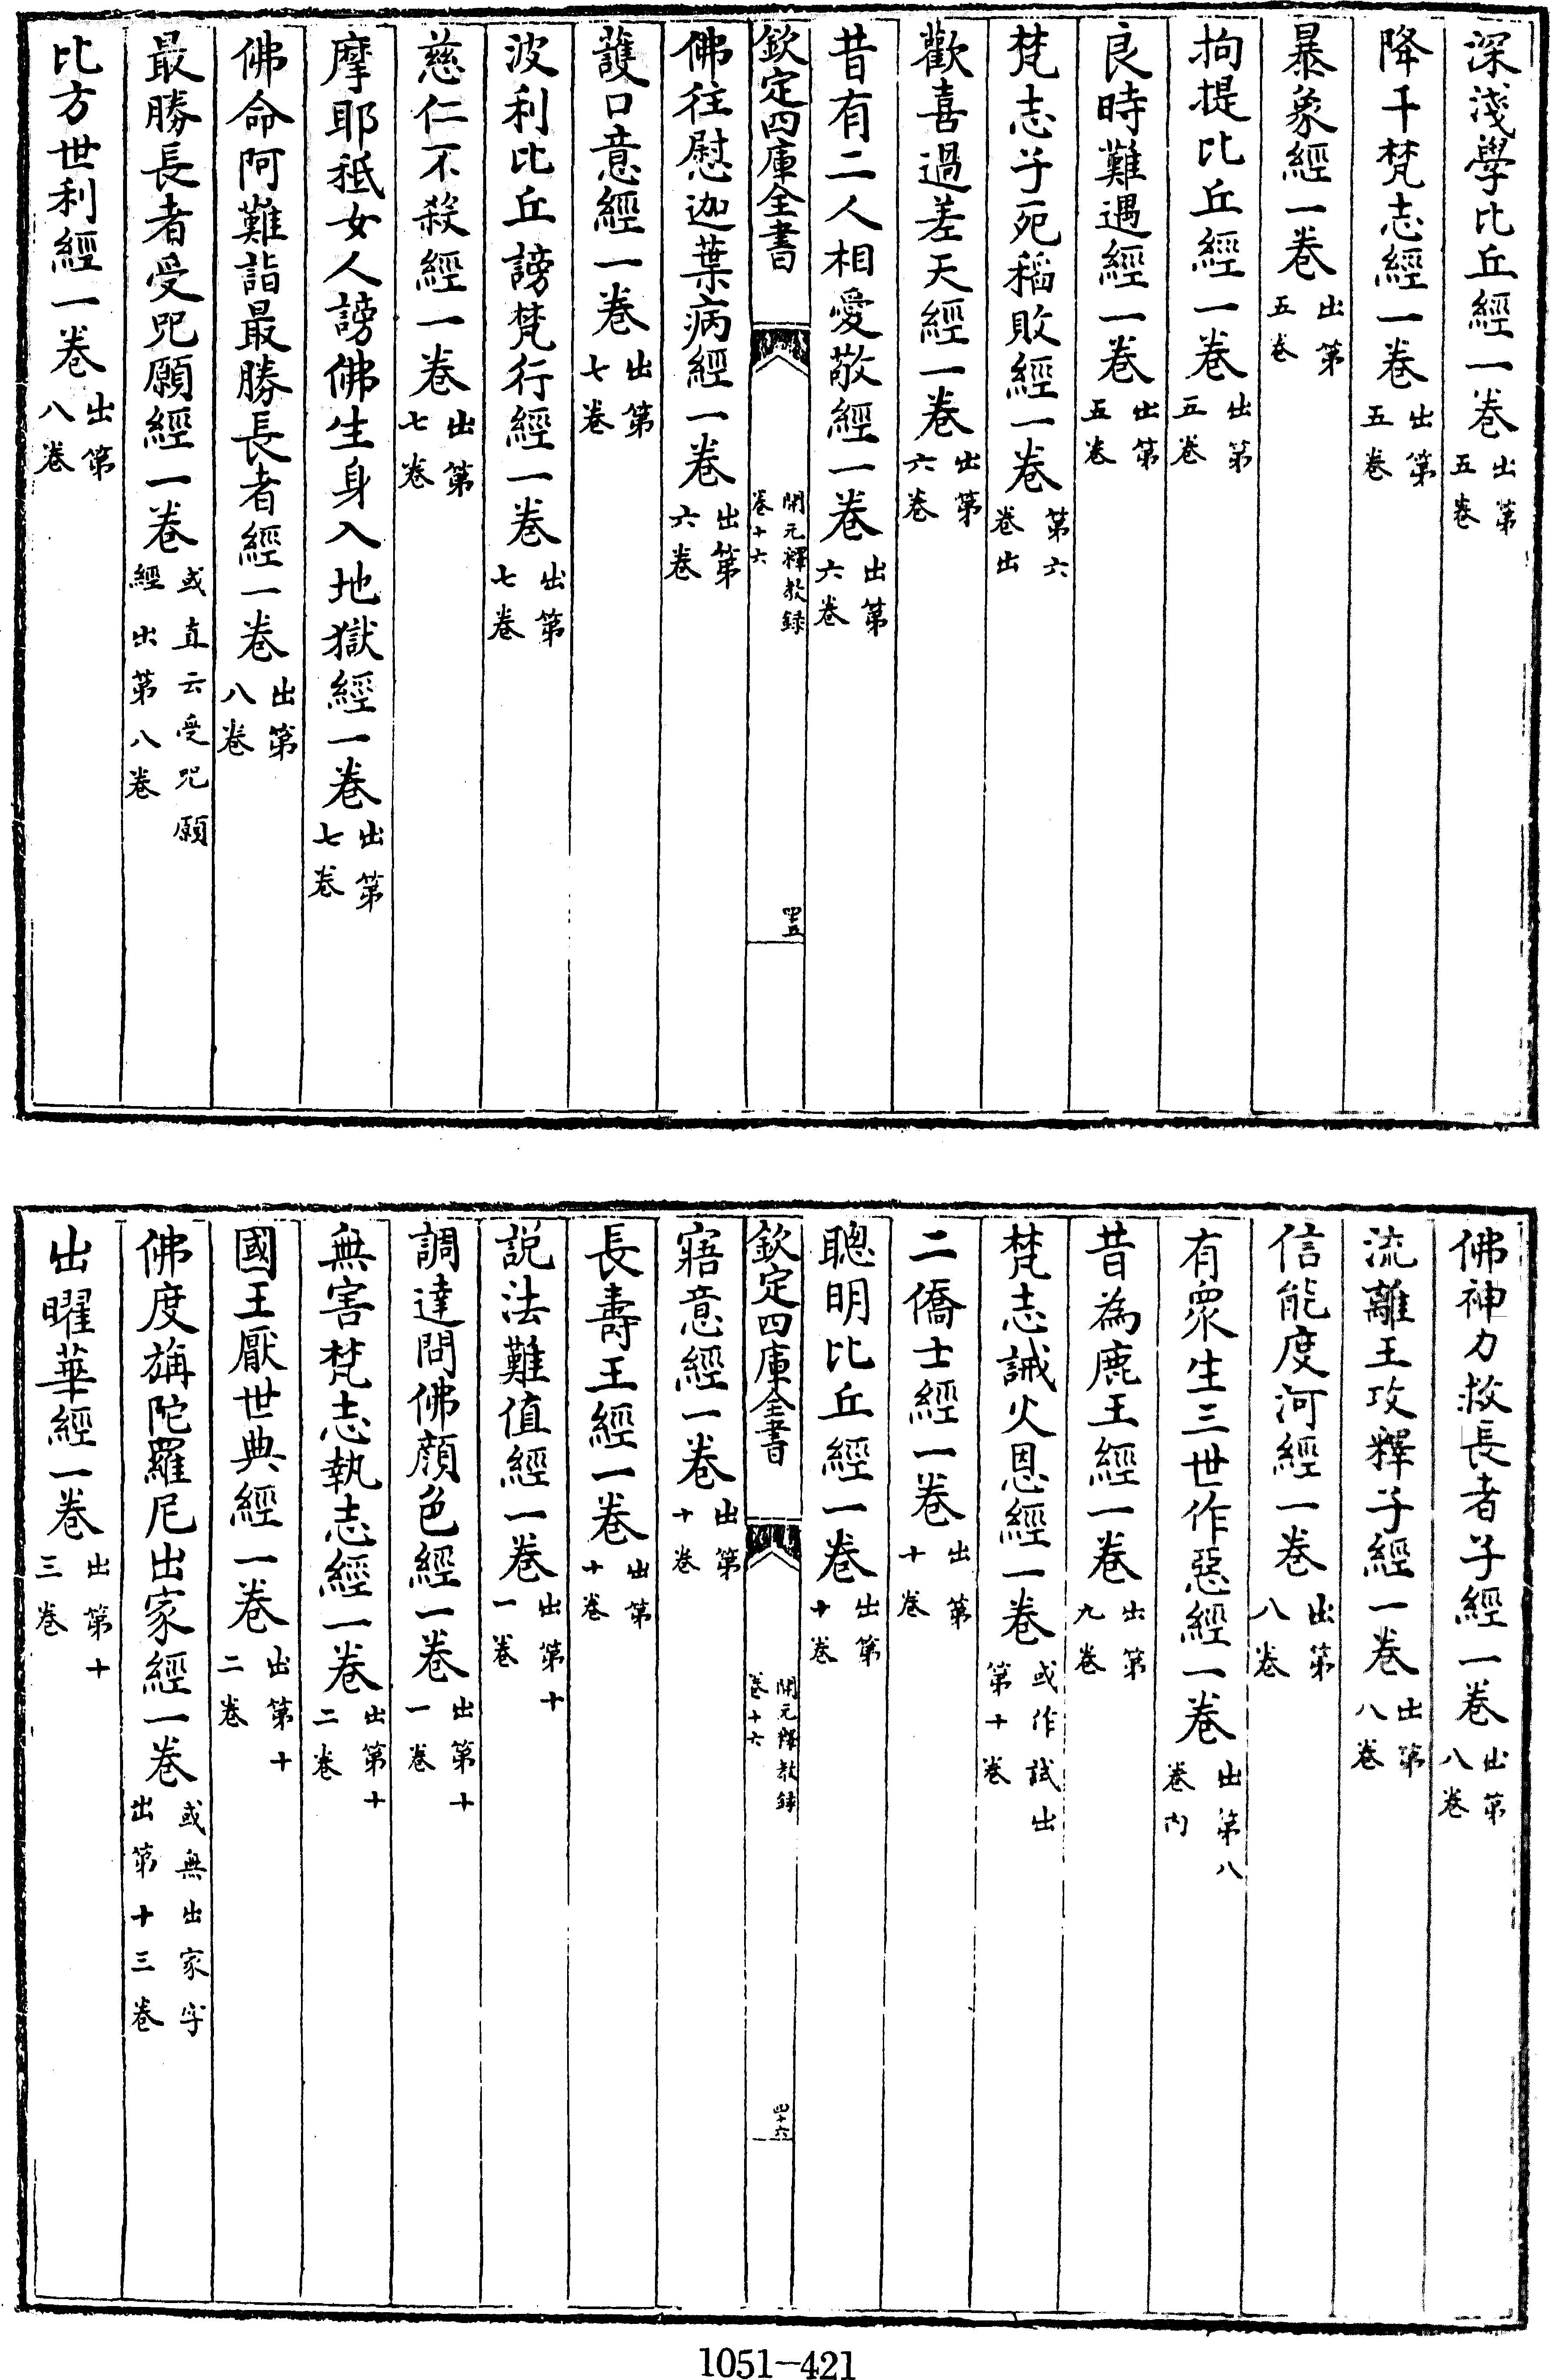 深淺學比丘經一卷出第五卷
降千梵志經一卷出第五卷
暴象經一卷出第五卷
拘提比丘經一卷出第五卷
良時難遇經一卷出第五卷
梵志子死稻敗經一卷第六卷出
歡喜過差天經一卷出第六卷
昔有二人相愛敬經一卷出第六卷
欽定四庫全書 開元釋教録卷十六 四十五
佛往慰迦葉病經一卷出第六卷
護口意經一卷出第七卷
波利比丘謗梵行經一卷出第七卷
慈仁不殺經一卷出第七卷
摩耶祇女人謗佛生身入地獄經一卷出第七卷
佛命阿難詣最勝長者經一卷出第八卷
最勝長者受呪願經一卷或直云受呪願經出第八卷
比方世利經一卷出第八卷
佛神力救長者子經一卷出第八卷
流離王攻釋子經一卷出第八卷
信能度河經一卷出第八卷
有眾生三世作惡經一卷出第八卷内
昔為鹿王經一卷出第九卷
梵志誡火恩經一卷或作試出第十卷
二僑士經一卷出第十卷
聰明比丘經一卷出第十卷
欽定四庫全書 開元釋教録卷十六 四十六
寤意經一卷出第十卷
長壽王經一卷出第十卷
説法難值經一卷出第十一卷
調達問佛顔色經一卷出第十一卷
無害梵志執志經一卷出第十二卷
國王厭世典經一卷出第十二卷
佛度旃陀羅尼出家經一卷或無出家字出第十三卷
出曜華經一卷出第十三卷
1051-421